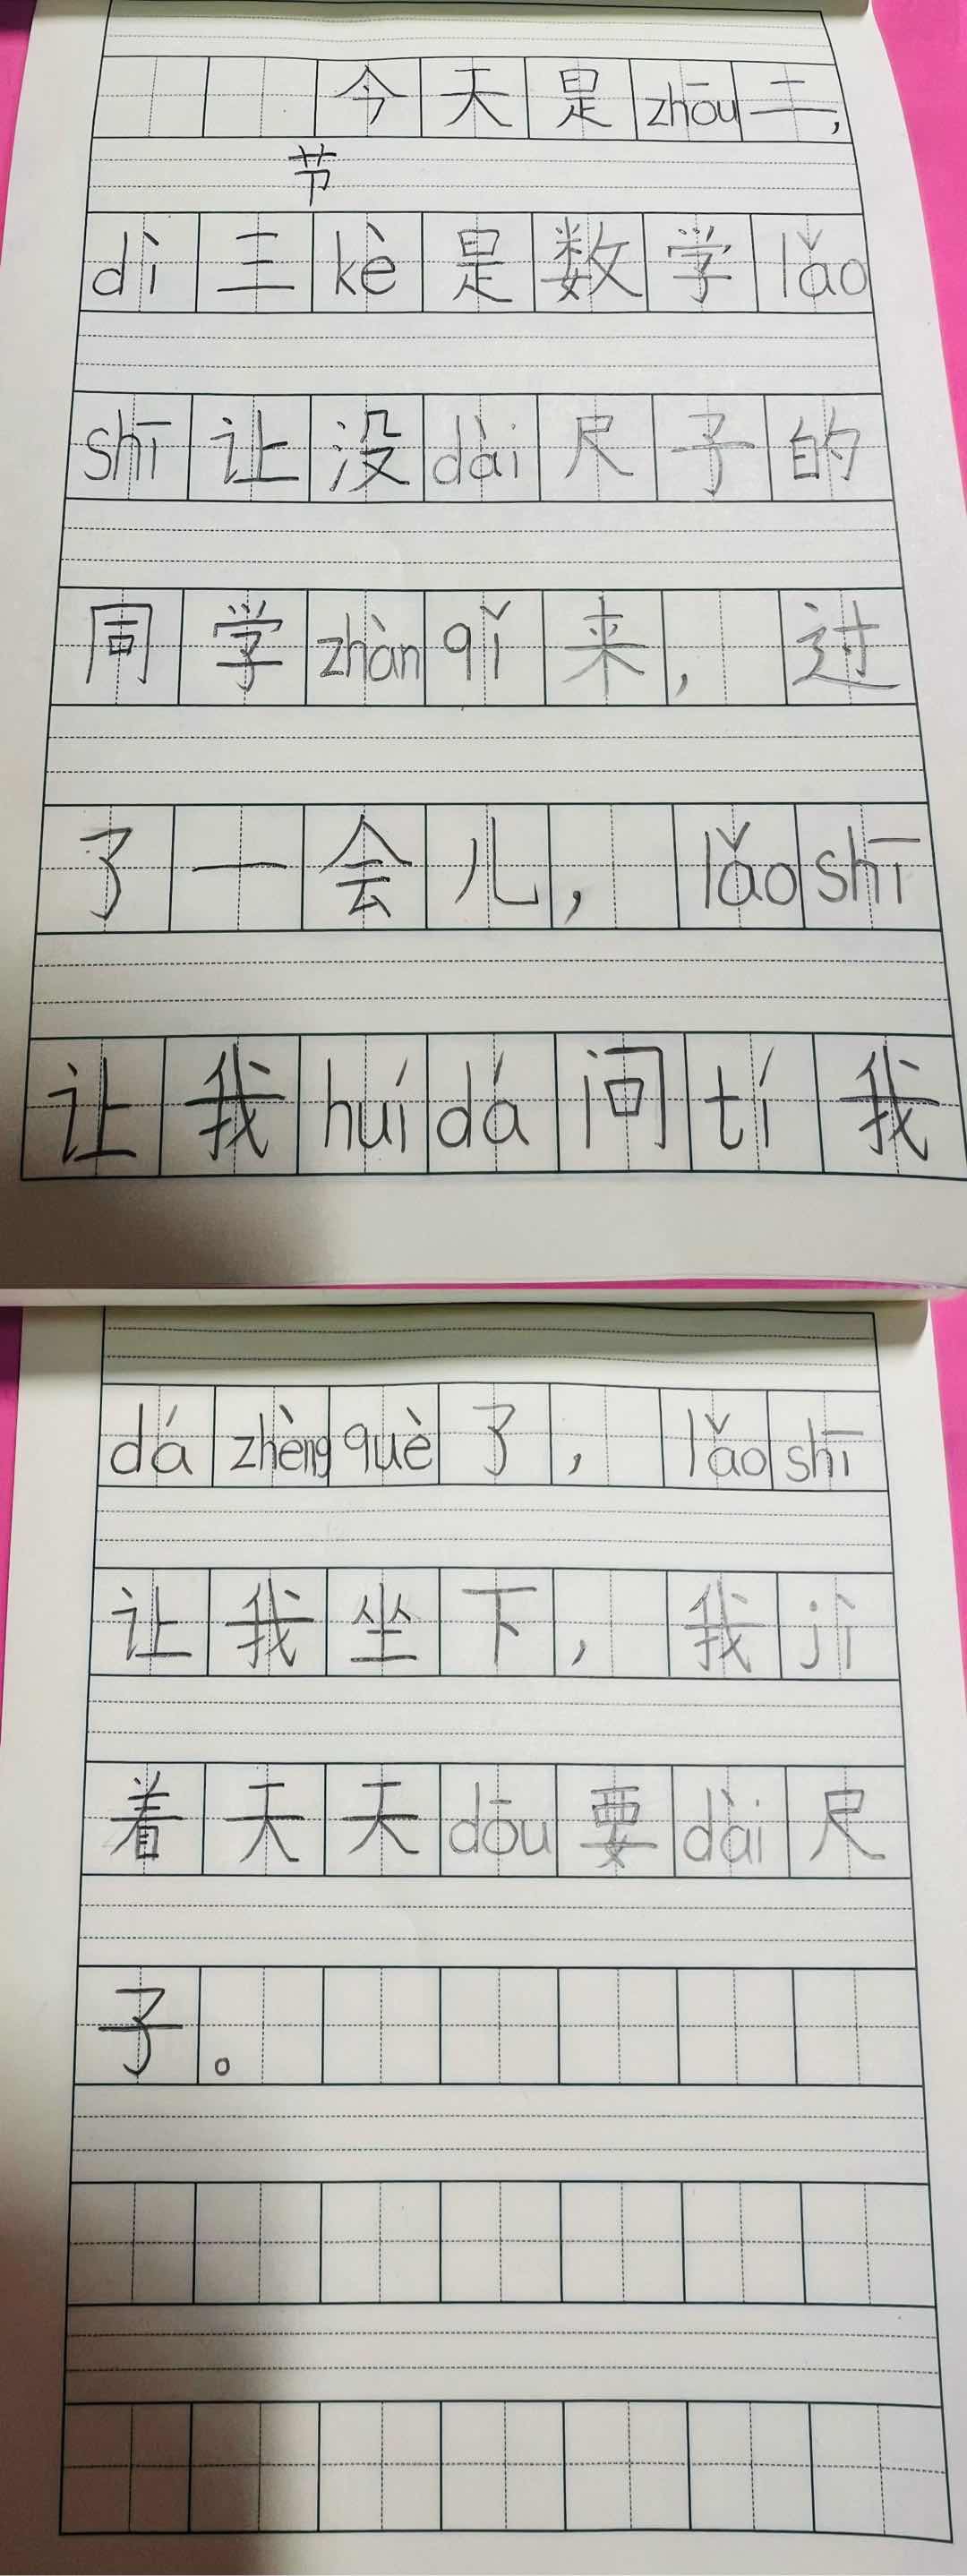 今天是zhōu二，
节
dì三kè是数学lǎo
shī让没dài尺子的
同学zhànqǐ来，过
了一会儿，lǎoshī
让我huídá问tí我
dázhèngquè了，lǎoshī
让我坐下，我jì
着天天dōu要dài尺
子。